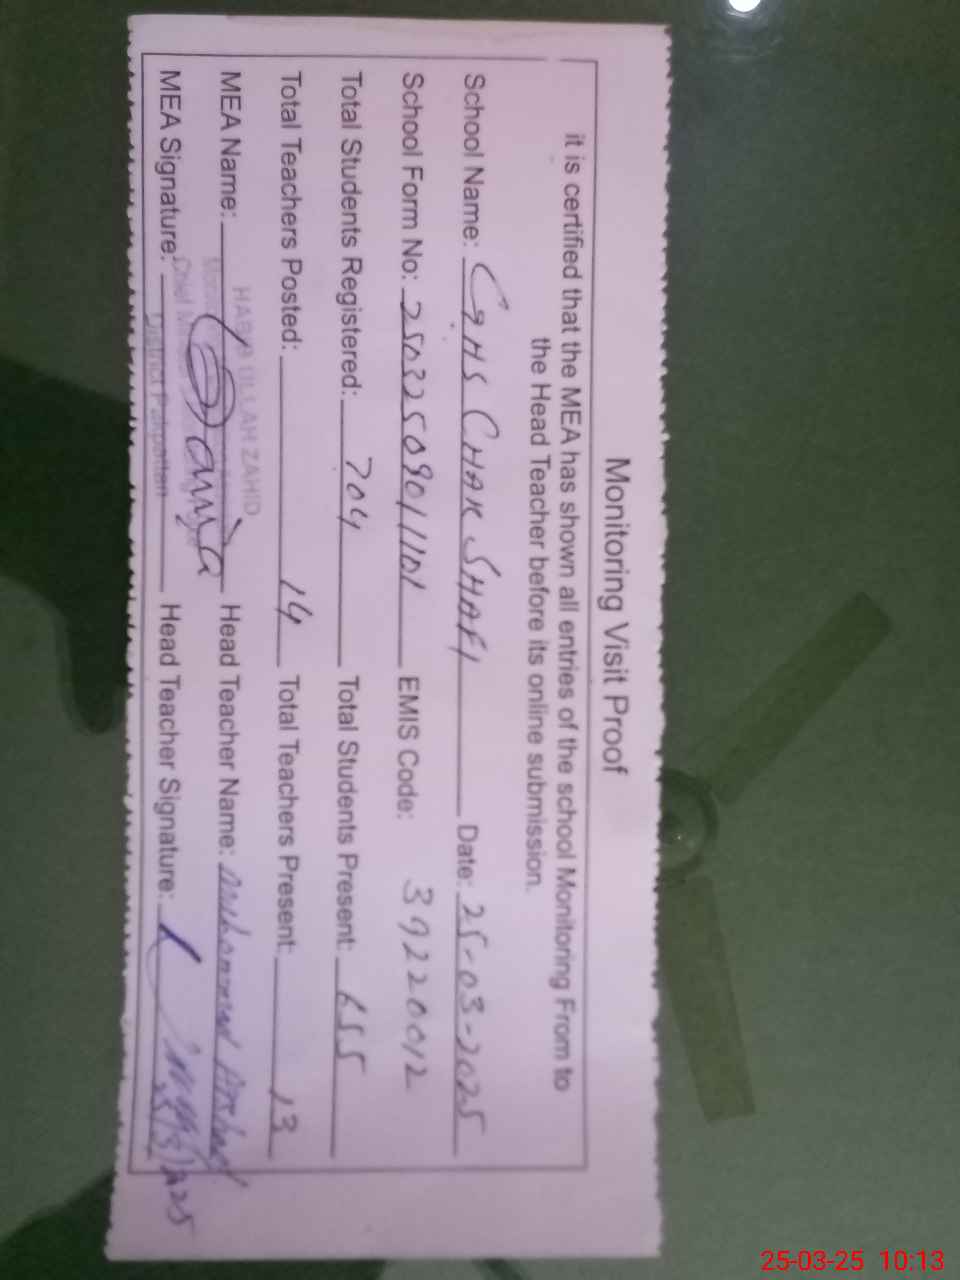 Monitoring Visit Proof
it is certified that the MEA has shown all entries of the school Monitoring From to
the Head Teacher before its online submission.
School Name: GHS CHAK SHAFI Date: 25-03-2025
School Form No: 25032509011101 EMIS Code: 39220012
Total Students Registered: 704 Total Students Present: 655
Total Teachers Posted: 14 Total Teachers Present: 13
HABIB ULLAH ZAHID
MEA Name: Head Teacher Name: Muhammad Arshad
Chief
MEA Signature: Head Teacher Signature:
District Pakpattan
25-03-25 10:13